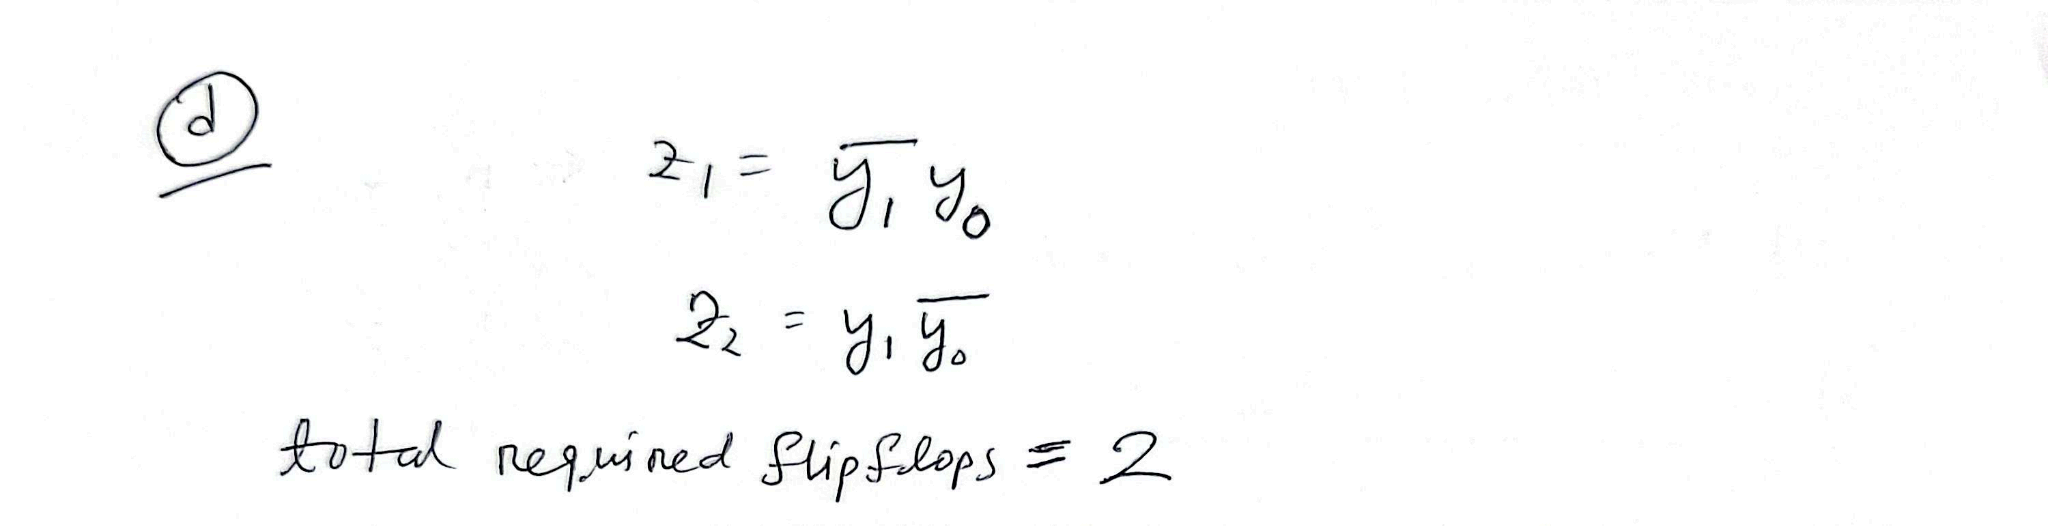 d
z₁ = y̅₁ y₀
z₂ = y₁ y̅₀
total required flipflops = 2